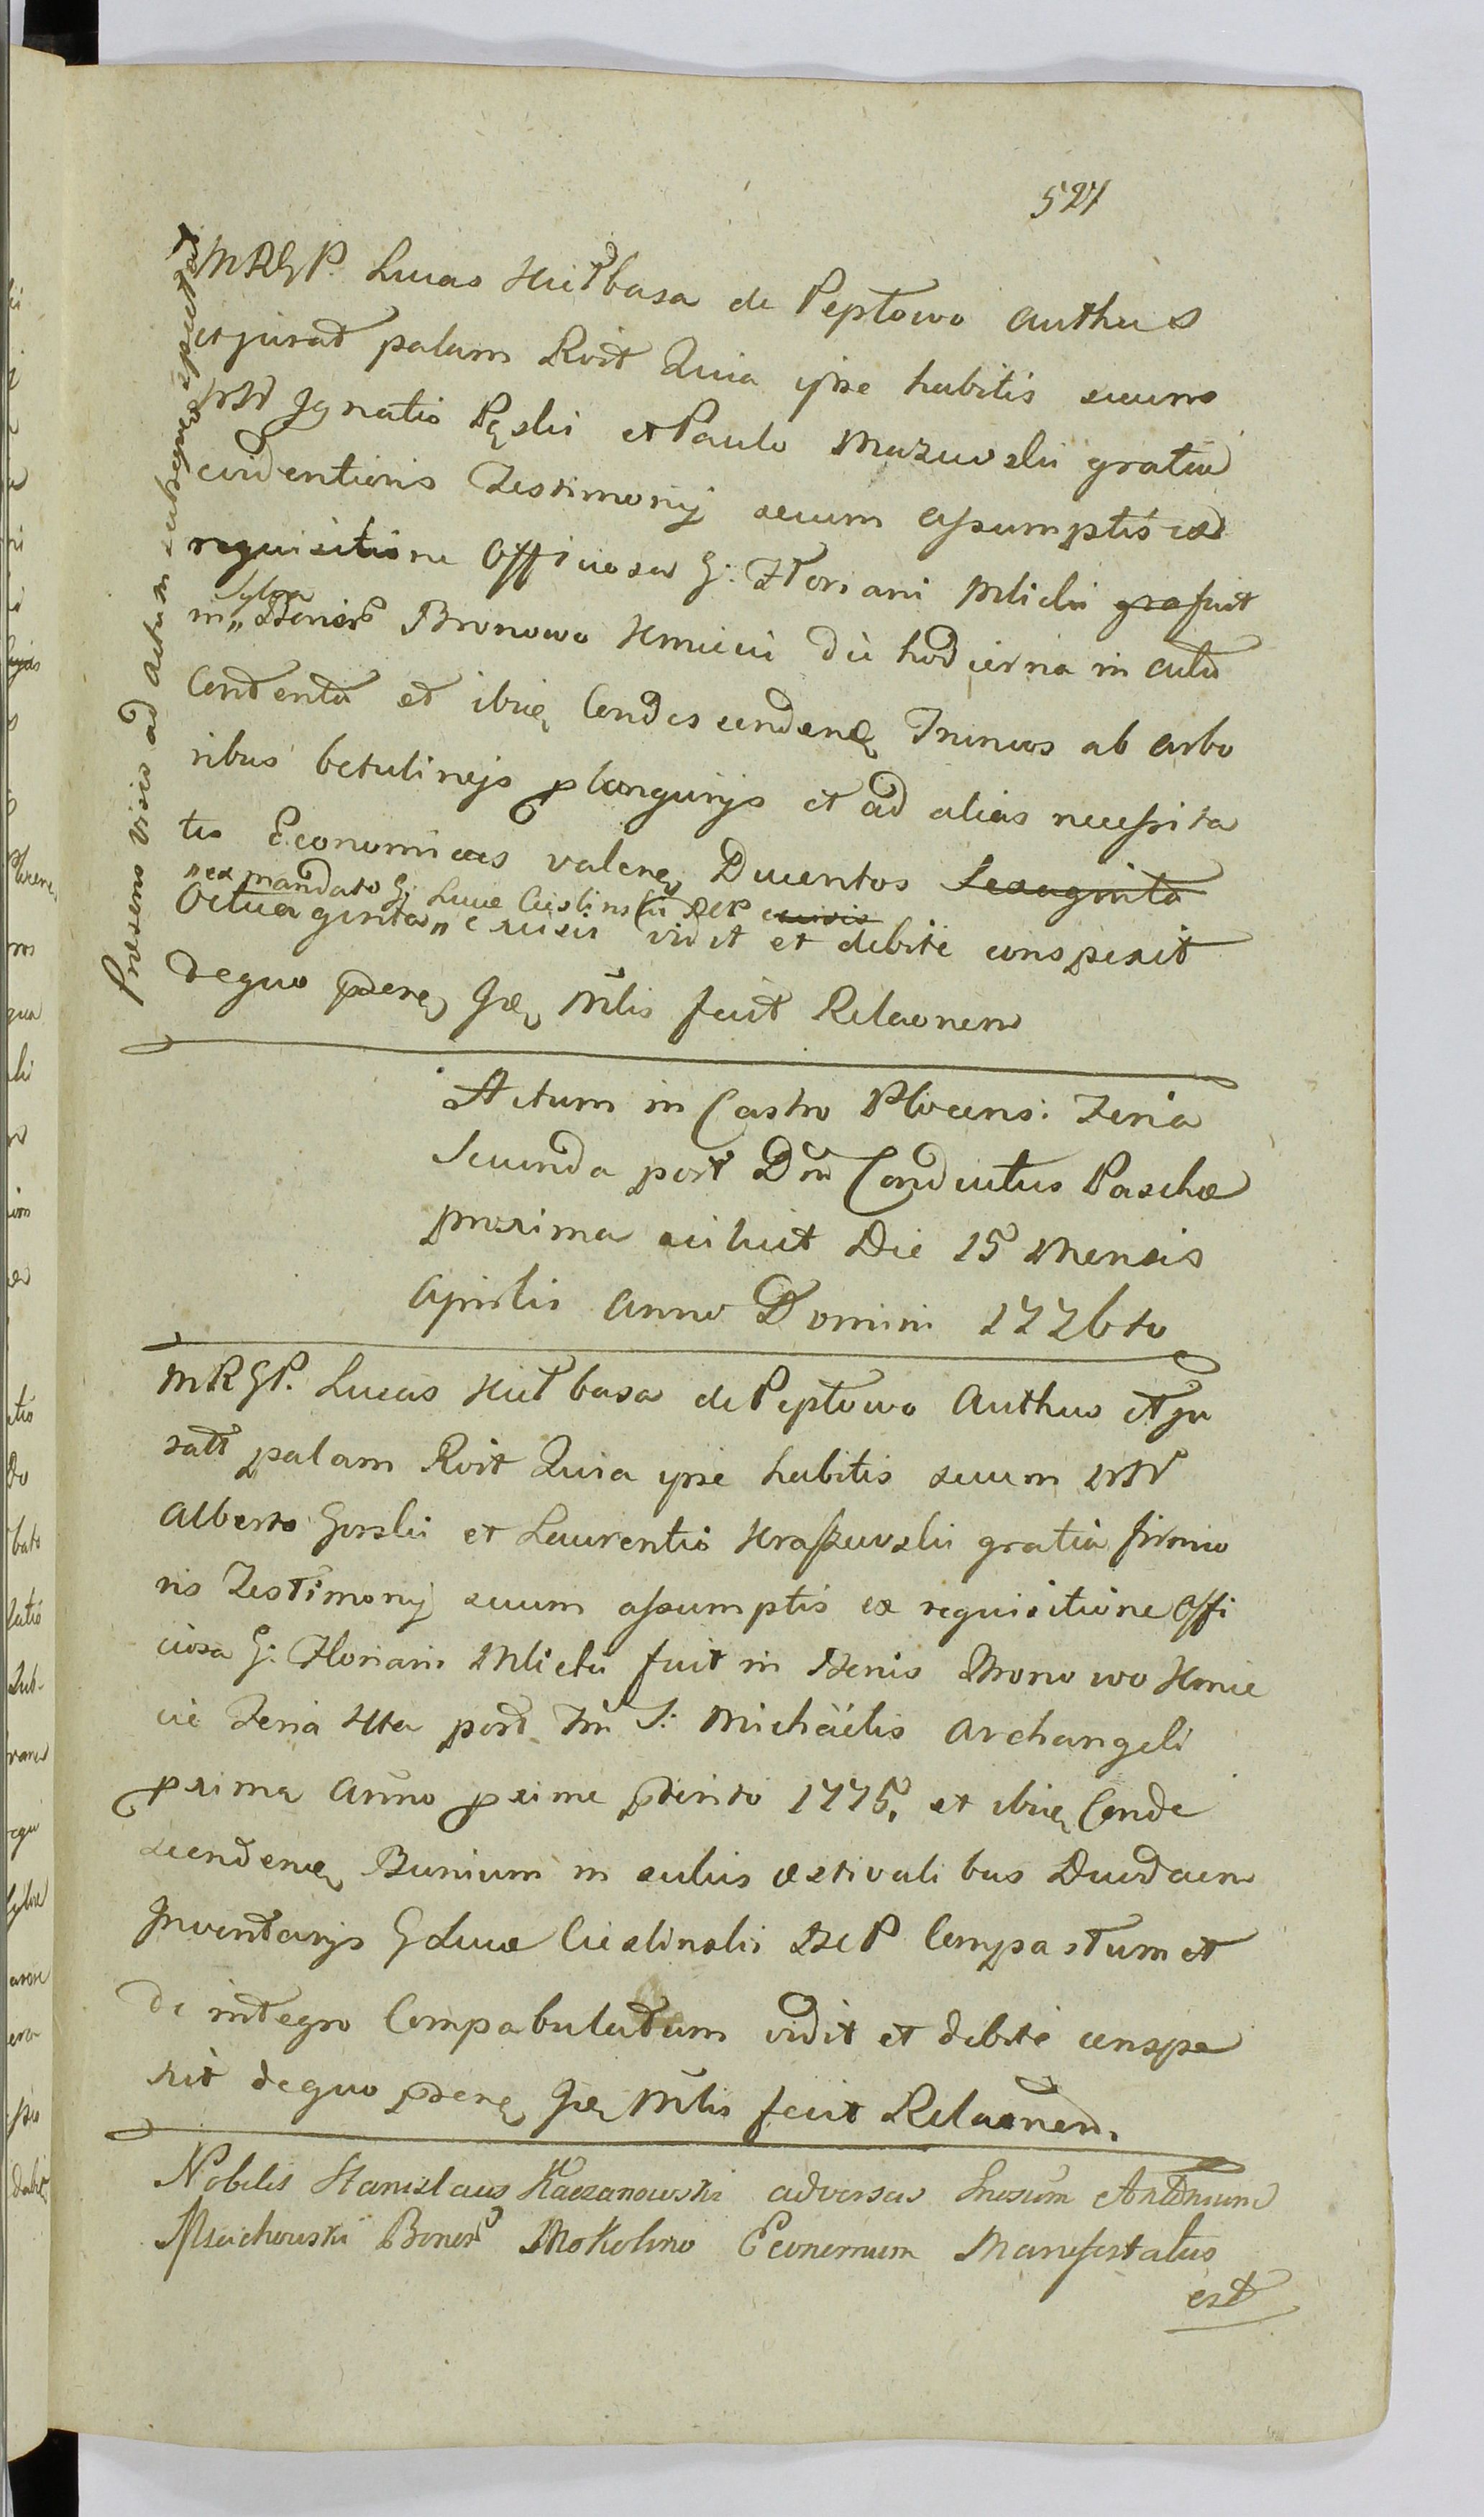 527
MRGP. Lucas Kiełbasa de Peptowo Authus
et jurat palam Roit Quia ipse habitis secum
NN Ignatio Pęski et Paulo Mazuwski gratia
evidentioris Testimonij secum assumptis ex
requisitione Officiosa G: Floriani Mlicki gra fuit
in „ Sylva Bonor Bronowo Kmieci die hodierna in eadem
Contenta et ibiq Condescendenq Truncos ab arbo
ribus betulineis p langurijs et ad alias necessita
tes Economicas valenq Ducentos Sexaginta
„ ex mandato G: Lucæ Cieslinski SRP excisis
Octuaginta „ excisis vidit et debite conspexit
de quo pdenq Gq Mlis fecit Relaonem
Præsens visio ad Actum
Actum in Castro Plocens: Feria
Secunda post Dm Conductus Paschæ
proxima scilicet Die 15 Mensis
Aprilis Anno Domini 1776to
MRGP. Lucas Kiełbasa de Peptowo Authus et ju
ratt palam Roit Quia ipse habitis secum NN
Alberto Gorski et Laurentio Kraszewski gratia firmio
ris Testimonij secum assumptis ex requisitione Offi
ciosa G: Floriani Mlicki fuit in Bonis Bronowo Kmie
cie Feria 4ta post Fm S: Michaelis Archangeli
pxima Anno pxime pterito 1775, et ibiq Conde
scendenq Bunium in sulcis æstivalibus Duodecim
Inventarijs G Lucæ Cieslinski SRP Compastum et
de integro Compabulatum vidit et debite conspe
xit de quo pdenq Gq Mlis fecit Relaonem.
Nobilis Stanislaus Kaczanowski adversus Gnosum Antonium
Mscichowski Bonor Mokolino Economum Manifestatus
est